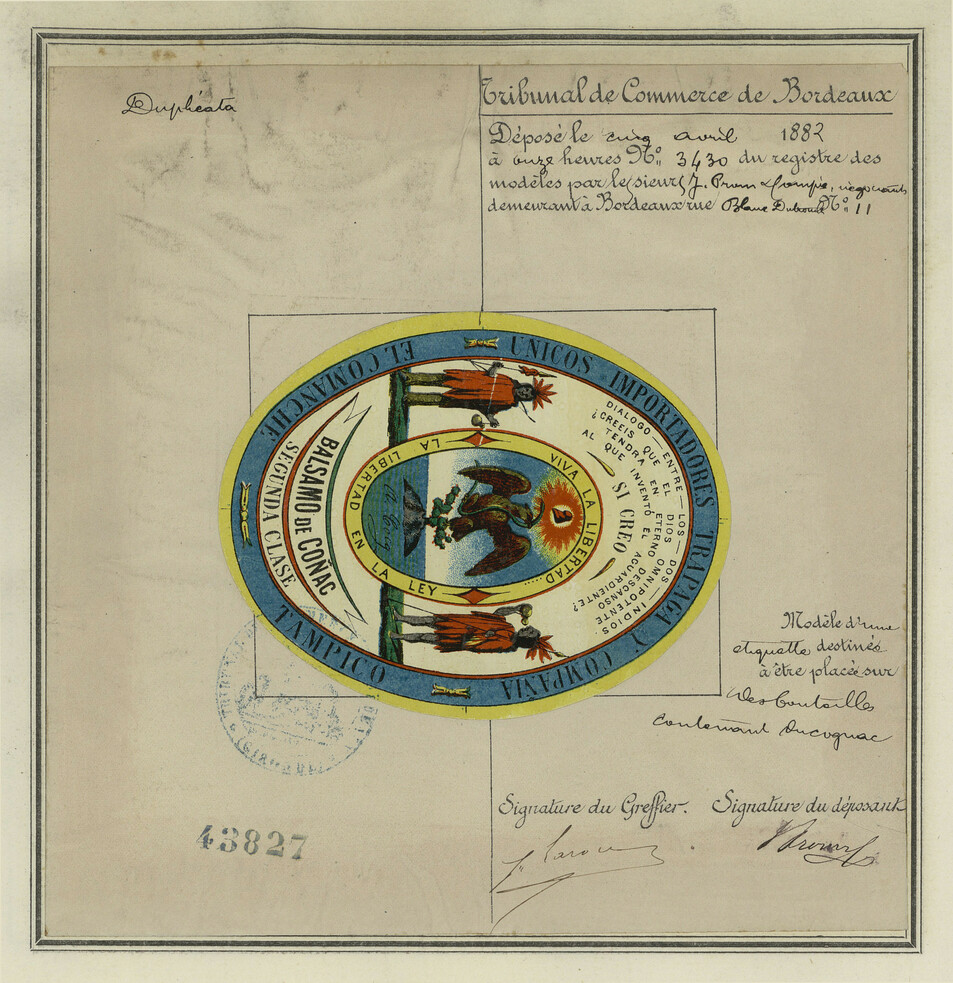 Duplicata
Tribunal de Commerce de Bordeaux
Déposé le cinq avril 1882
à onze heures No. 3430 du registre des
modèles par le sieurs J. Prom & Compie, négociants
demeurant à Bordeaux rue Blanc Dutrouilh No. 11
EL COMANCHE
UNICOS IMPORTADORES TRAPAGA Y COMPAÑIA
TAMPICO
SEGUNDA CLASE
BALSAMO DE COÑAC
DIALOGO — ENTRE — LOS — DOS — INDIOS:
¿CREEIS QUE EL DIOS OMNIPOTENTE
TENDRA EN ETERNO DESCANSO
AL QUE INVENTÓ EL AGUARDIENTE?
SI CREO
VIVA LA LIBERTAD....
LA LIBERTAD EN LA LEY
Modèle d'une
etiquette destinée
à être placée sur
des bouteilles
contenant du cognac
Signature du Greffier. Signature du déposant
43827